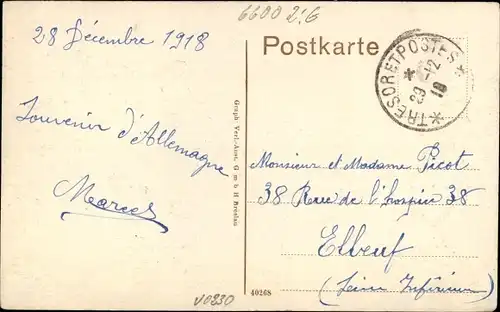 6600 2.G
28 Décembre 1918
Postkarte
* TRESOR ET POSTES *
29 -12
18
Souvenir d'Allemagne
Marcel
Graph. Verl.-Anst. G m b H Breslau
Monsieur et Madame Picot
38 Rue de l'hospice 38
Elbeuf
(Seine Inférieure)
40268
V0330